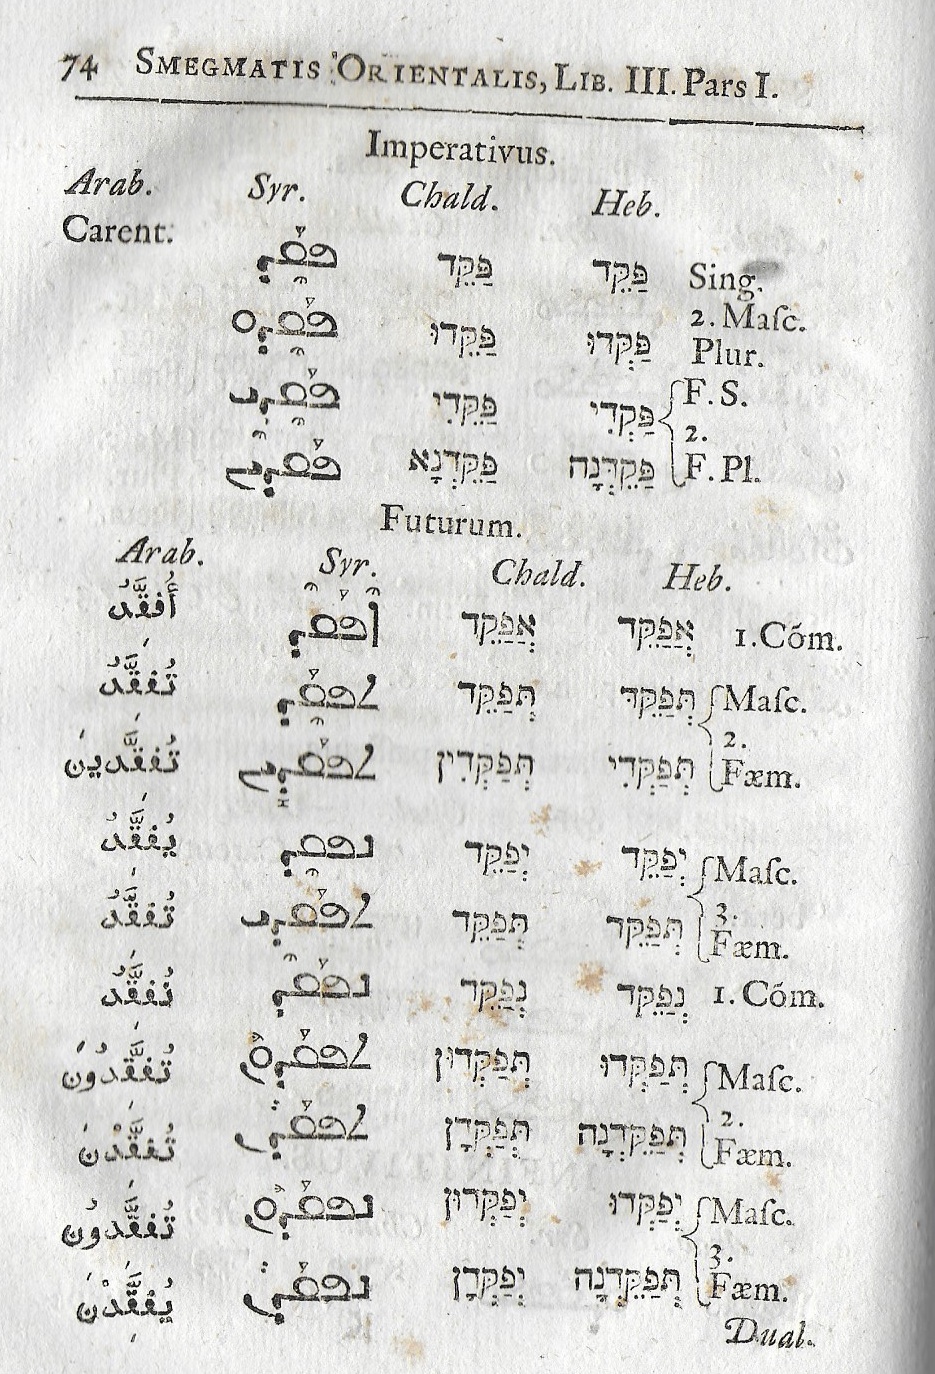 74 SMEGMATIS ORIENTALIS, LIB. III. Pars I.
Imperativus.
Arab. Syr. Chald. Heb.
Carent. ܦܩܕ פַּקֵּד פַּקֵּד Sing.
2. Maſc.
ܦܩܕܘ פַּקֵּדוּ פַּקְּדוּ Plur.
ܦܩܕܝ פַּקֵּדִי פַּקְּדִי F. S.
2.
ܦܩܕܝܢ פַּקֵּדְנָא פַּקֵּדְנָה F. Pl.
Futurum.
Arab. Syr. Chald. Heb.
أُفَقِّدُ ܐܦܩܕ אֲפַקֵּד אֲפַקֵּד 1. Cõm.
تُفَقِّدُ ܬܦܩܕ תְּפַקֵּד תְּפַקֵּד Maſc.
2.
تُفَقِّدِينَ ܬܦܩܕܝܢ תְּפַקְּדִין תְּפַקְּדִי Fæm.
يُفَقِّدُ ܢܦܩܕ יְפַקֵּד יְפַקֵּד Maſc.
3.
تُفَقِّدُ ܬܦܩܕܝ תְּפַקֵּד תְּפַקֵּד Fæm.
نُفَقِّدُ ܢܦܩܕ נְפַקֵּד נְפַקֵּד 1. Cõm.
تُفَقِّدُونَ ܬܦܩܕܘܢ תְּפַקְּדוּן תְּפַקְּדוּ Maſc.
2.
تُفَقِّدْنَ ܬܦܩܕܢ תְּפַקְּדָן תְּפַקֵּדְנָה Fæm.
تُفَقِّدُونَ ܢܦܩܕܘܢ יְפַקְּדוּן יְפַקְּדוּ Maſc.
3.
يُفَقِّدْنَ ܢܦܩܕܢ יְפַקְּדָן תְּפַקֵּדְנָה Fæm.
Dual.